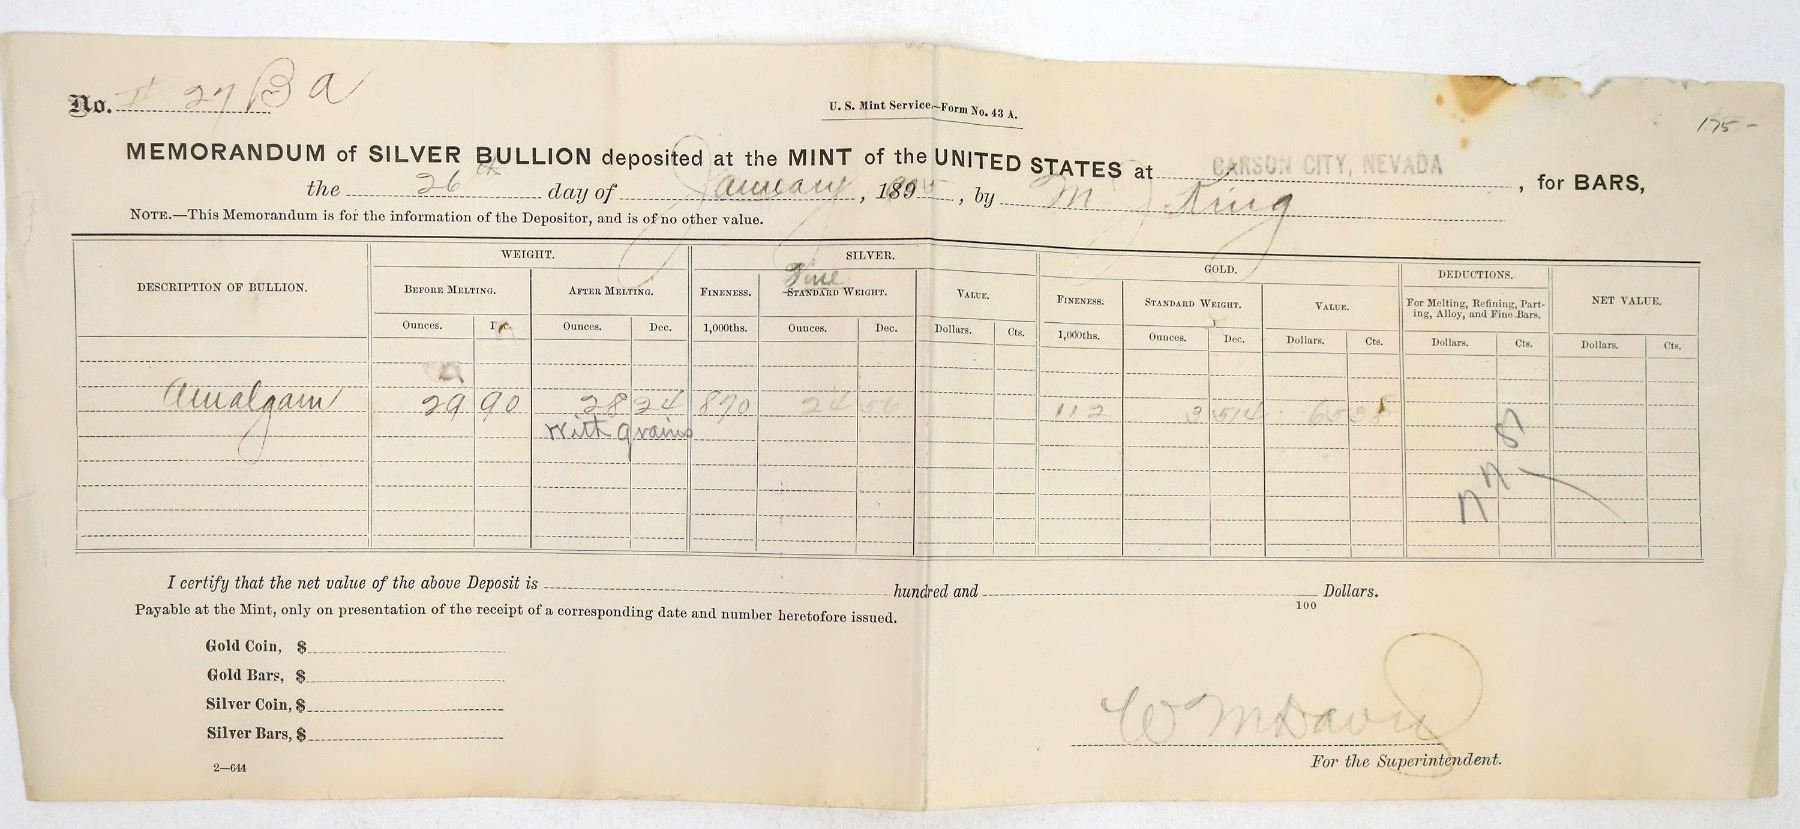 No. 27 B a
U. S. Mint Service.—Form No. 43 A.
175-
MEMORANDUM of SILVER BULLION deposited at the MINT of the UNITED STATES at CARSON CITY, NEVADA, for BARS,
the 26th day of January, 189, by M J King
NOTE.—This Memorandum is for the information of the Depositor, and is of no other value.
DESCRIPTION OF BULLION. WEIGHT. SILVER. GOLD. DEDUCTIONS. NET VALUE.
BEFORE MELTING. AFTER MELTING. FINENESS. Fine STANDARD WEIGHT. VALUE. FINENESS. STANDARD WEIGHT. VALUE. For Melting, Refining, Part-
ing, Alloy, and Fine Bars.
Ounces. Dec. Ounces. Dec. 1,000ths. Ounces. Dec. Dollars. Cts. 1,000ths. Ounces. Dec. Dollars. Cts. Dollars. Cts. Dollars. Cts.
Amalgam 29 90 28 24 870 24 56 112 3 514 65
With grains
I certify that the net value of the above Deposit is hundred and /100 Dollars.
Payable at the Mint, only on presentation of the receipt of a corresponding date and number heretofore issued.
Gold Coin, $
Gold Bars, $
Silver Coin, $
Silver Bars, $
W M Davis
For the Superintendent.
2—644